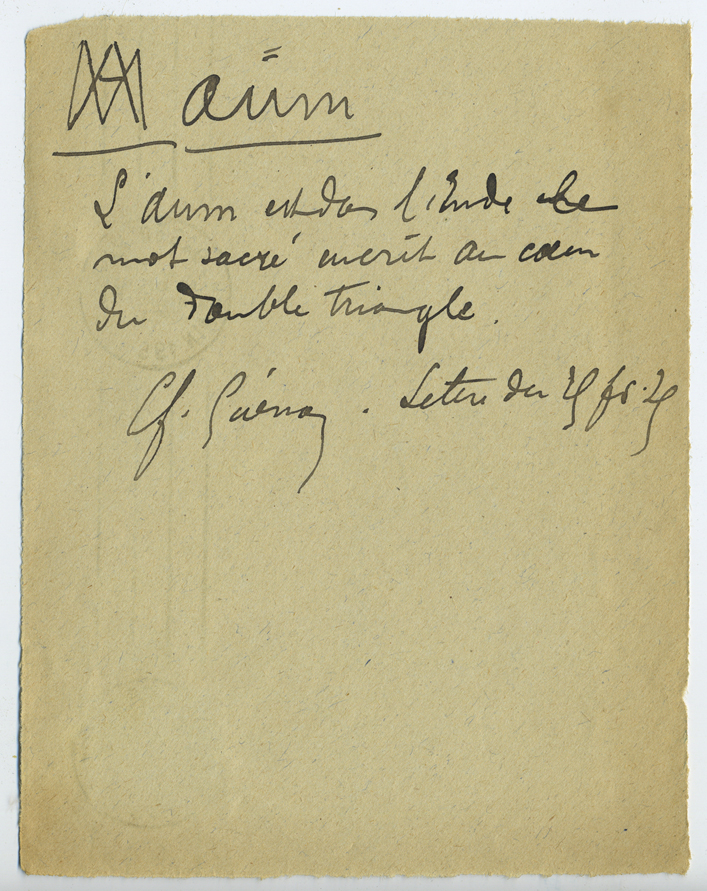 aüm
L'aum est dans l'Inde le
mot sacré inscrit au cœur
du double triangle.
Cf. Guénon. Lettre du